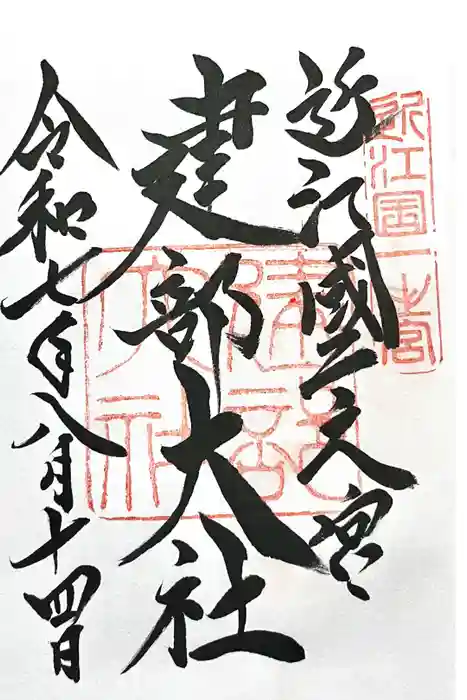 近江国一之宮
近江國一之宮
建部大社
令和七年八月十四日